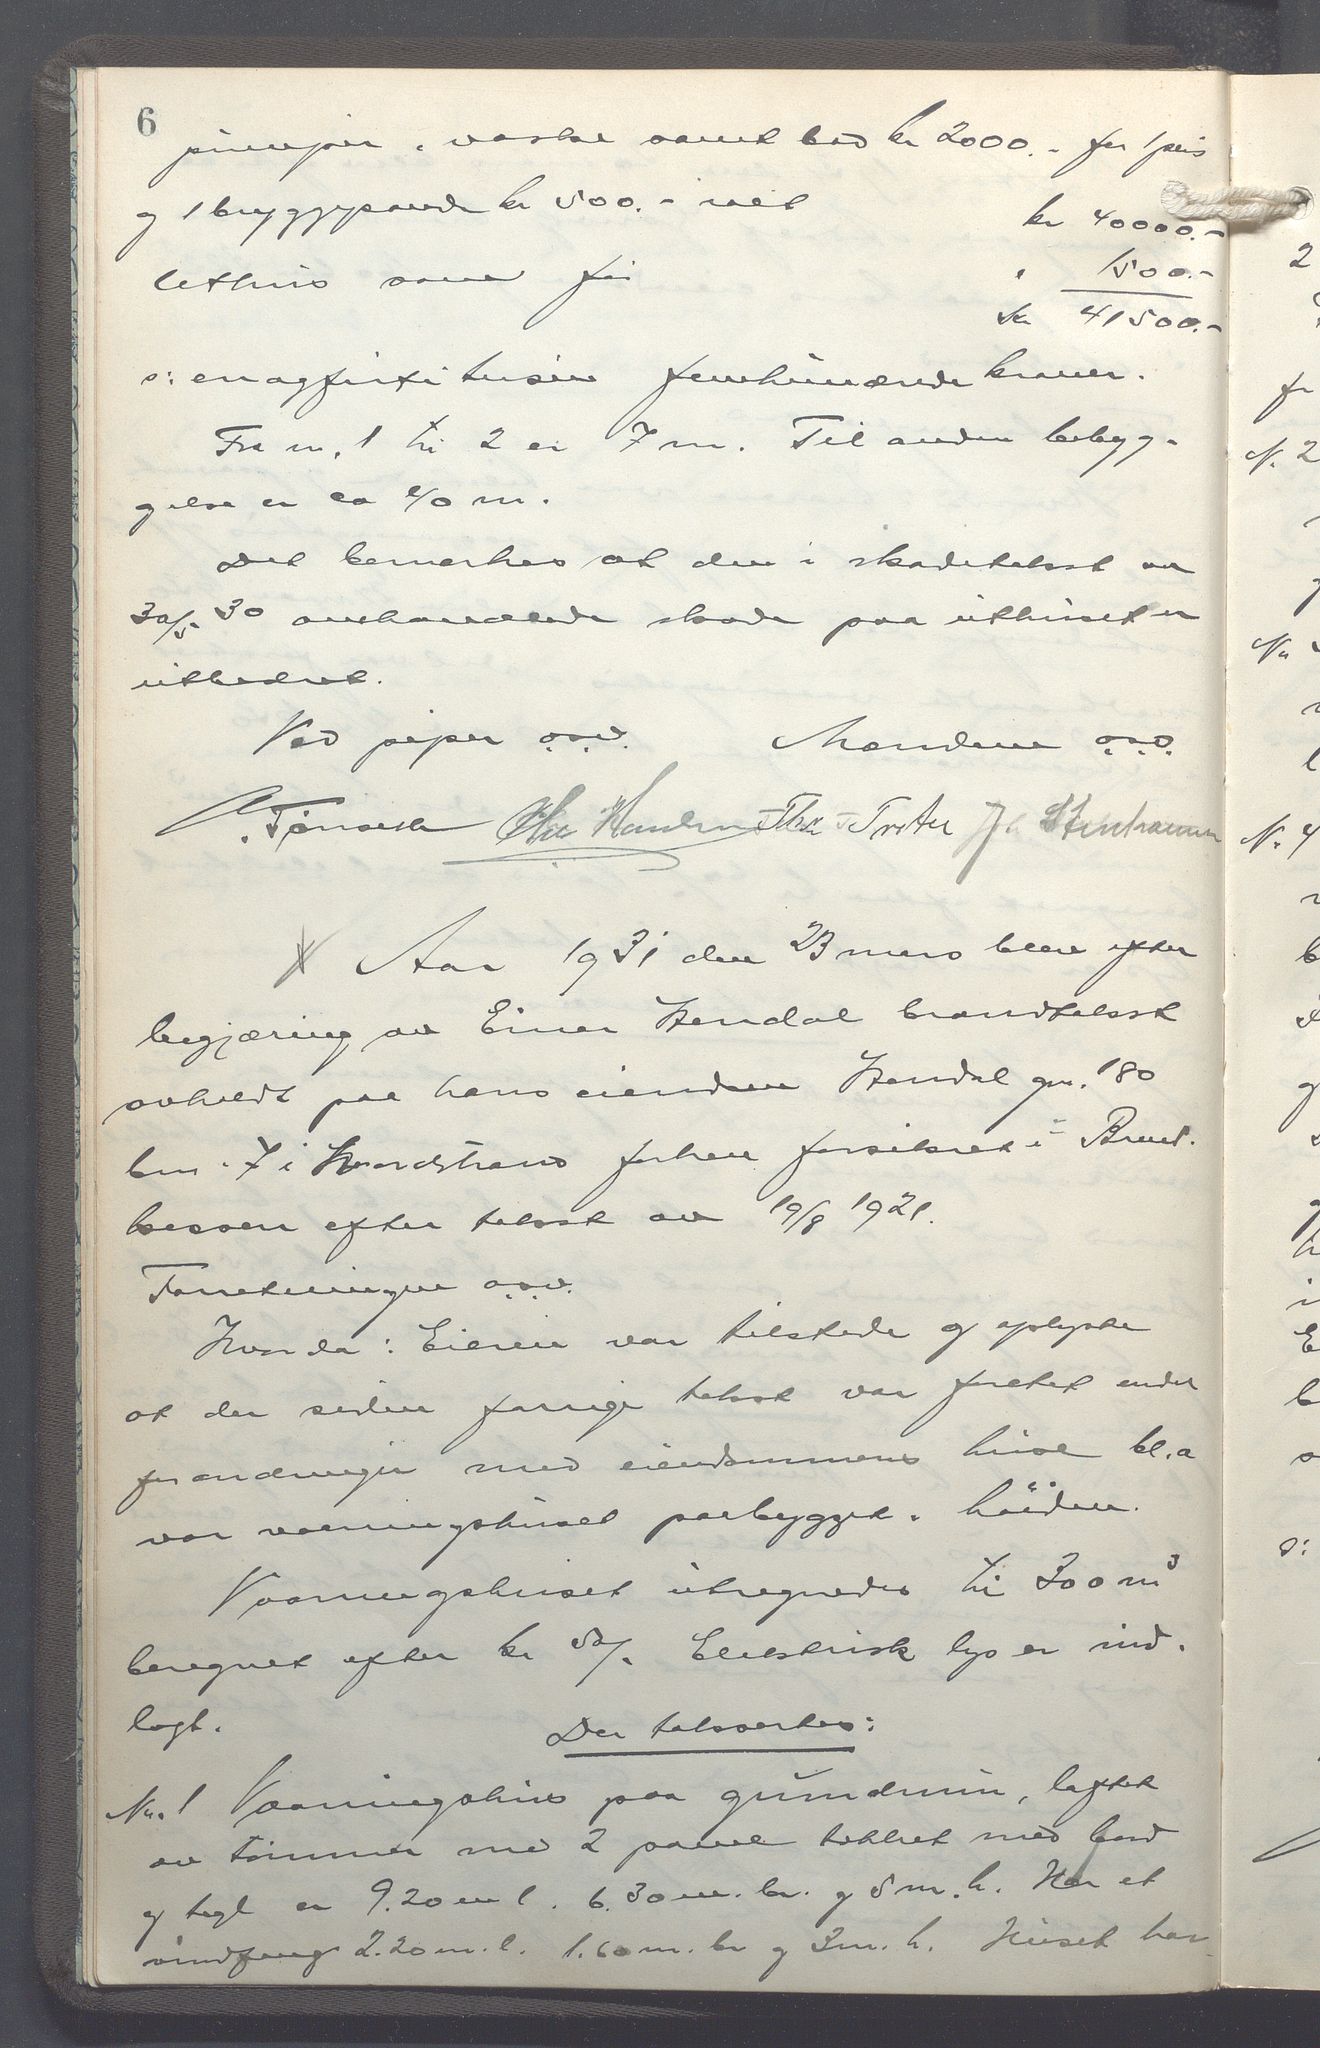 6
vaske samt bad kr 2000.- for 1 peis
og 1 bryggepande kr 500.- ialt kr 40000.-
Uthus som før " 1500.-
kr 41500.-
o: enogfirti tusen femhundrede kroner.
Fra nr. 1 til 2 er 7 m. Til anden bebyg-
gelse er ca 40 m.
Det bemerkes at den i skadetakst av
30/5 30 omhandlede skade paa uthuset er
utbedret.
Ved piper o.s.v. Mændene o.s.v.
Aar 1931 den 23 mars blev efter
begjæring av Einar Hendal brandtakst
avholdt paa hans eiendom Hendal gn. 180
bn. 7 i forhen forsikret i Brand-
kassen efter takst av 19/8 1921.
Forretningen o.s.v.
Hvorda: Eieren var tilstede og oplyste
at der siden forrige takst var foretat endel
forandringer med eiendommens huse bl.a
var vaaningshuset paabygget i høiden.
Vaaningshuset utregnedes til 300 m³
beregnet efter kr 50/- Elektrisk lys er ind-
lagt.
Der takseertes:
Nr. 1 Vaaningshus paa grundmur, laftet
av tømmer med 2 panel tekket med bord
og tegl er 9.20 m l. 6.30 m. br. og 5 m. h. Har et
vindfang 2.20 m. l. 1.60 m. br og 3 m. h. Huset har